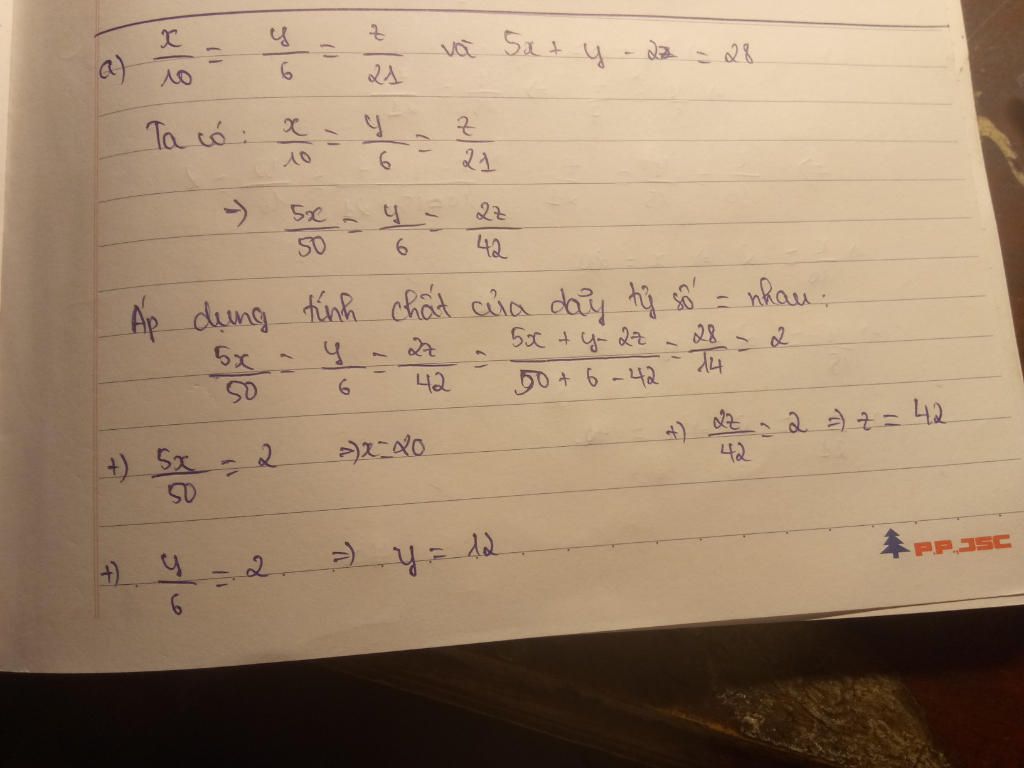 a) x/10 = y/6 = z/21 và 5x + y - 2z = 28
Ta có: x/10 = y/6 = z/21
=> 5x/50 = y/6 = 2z/42
Áp dụng tính chất của dãy tỷ số = nhau:
5x/50 = y/6 = 2z/42 = 5x + y - 2z/50 + 6 - 42 = 28/14 = 2
+) 5x/50 = 2 => x = 20 +) 2z/42 = 2 => z = 42
+) y/6 = 2 => y = 12
P.P.JSC